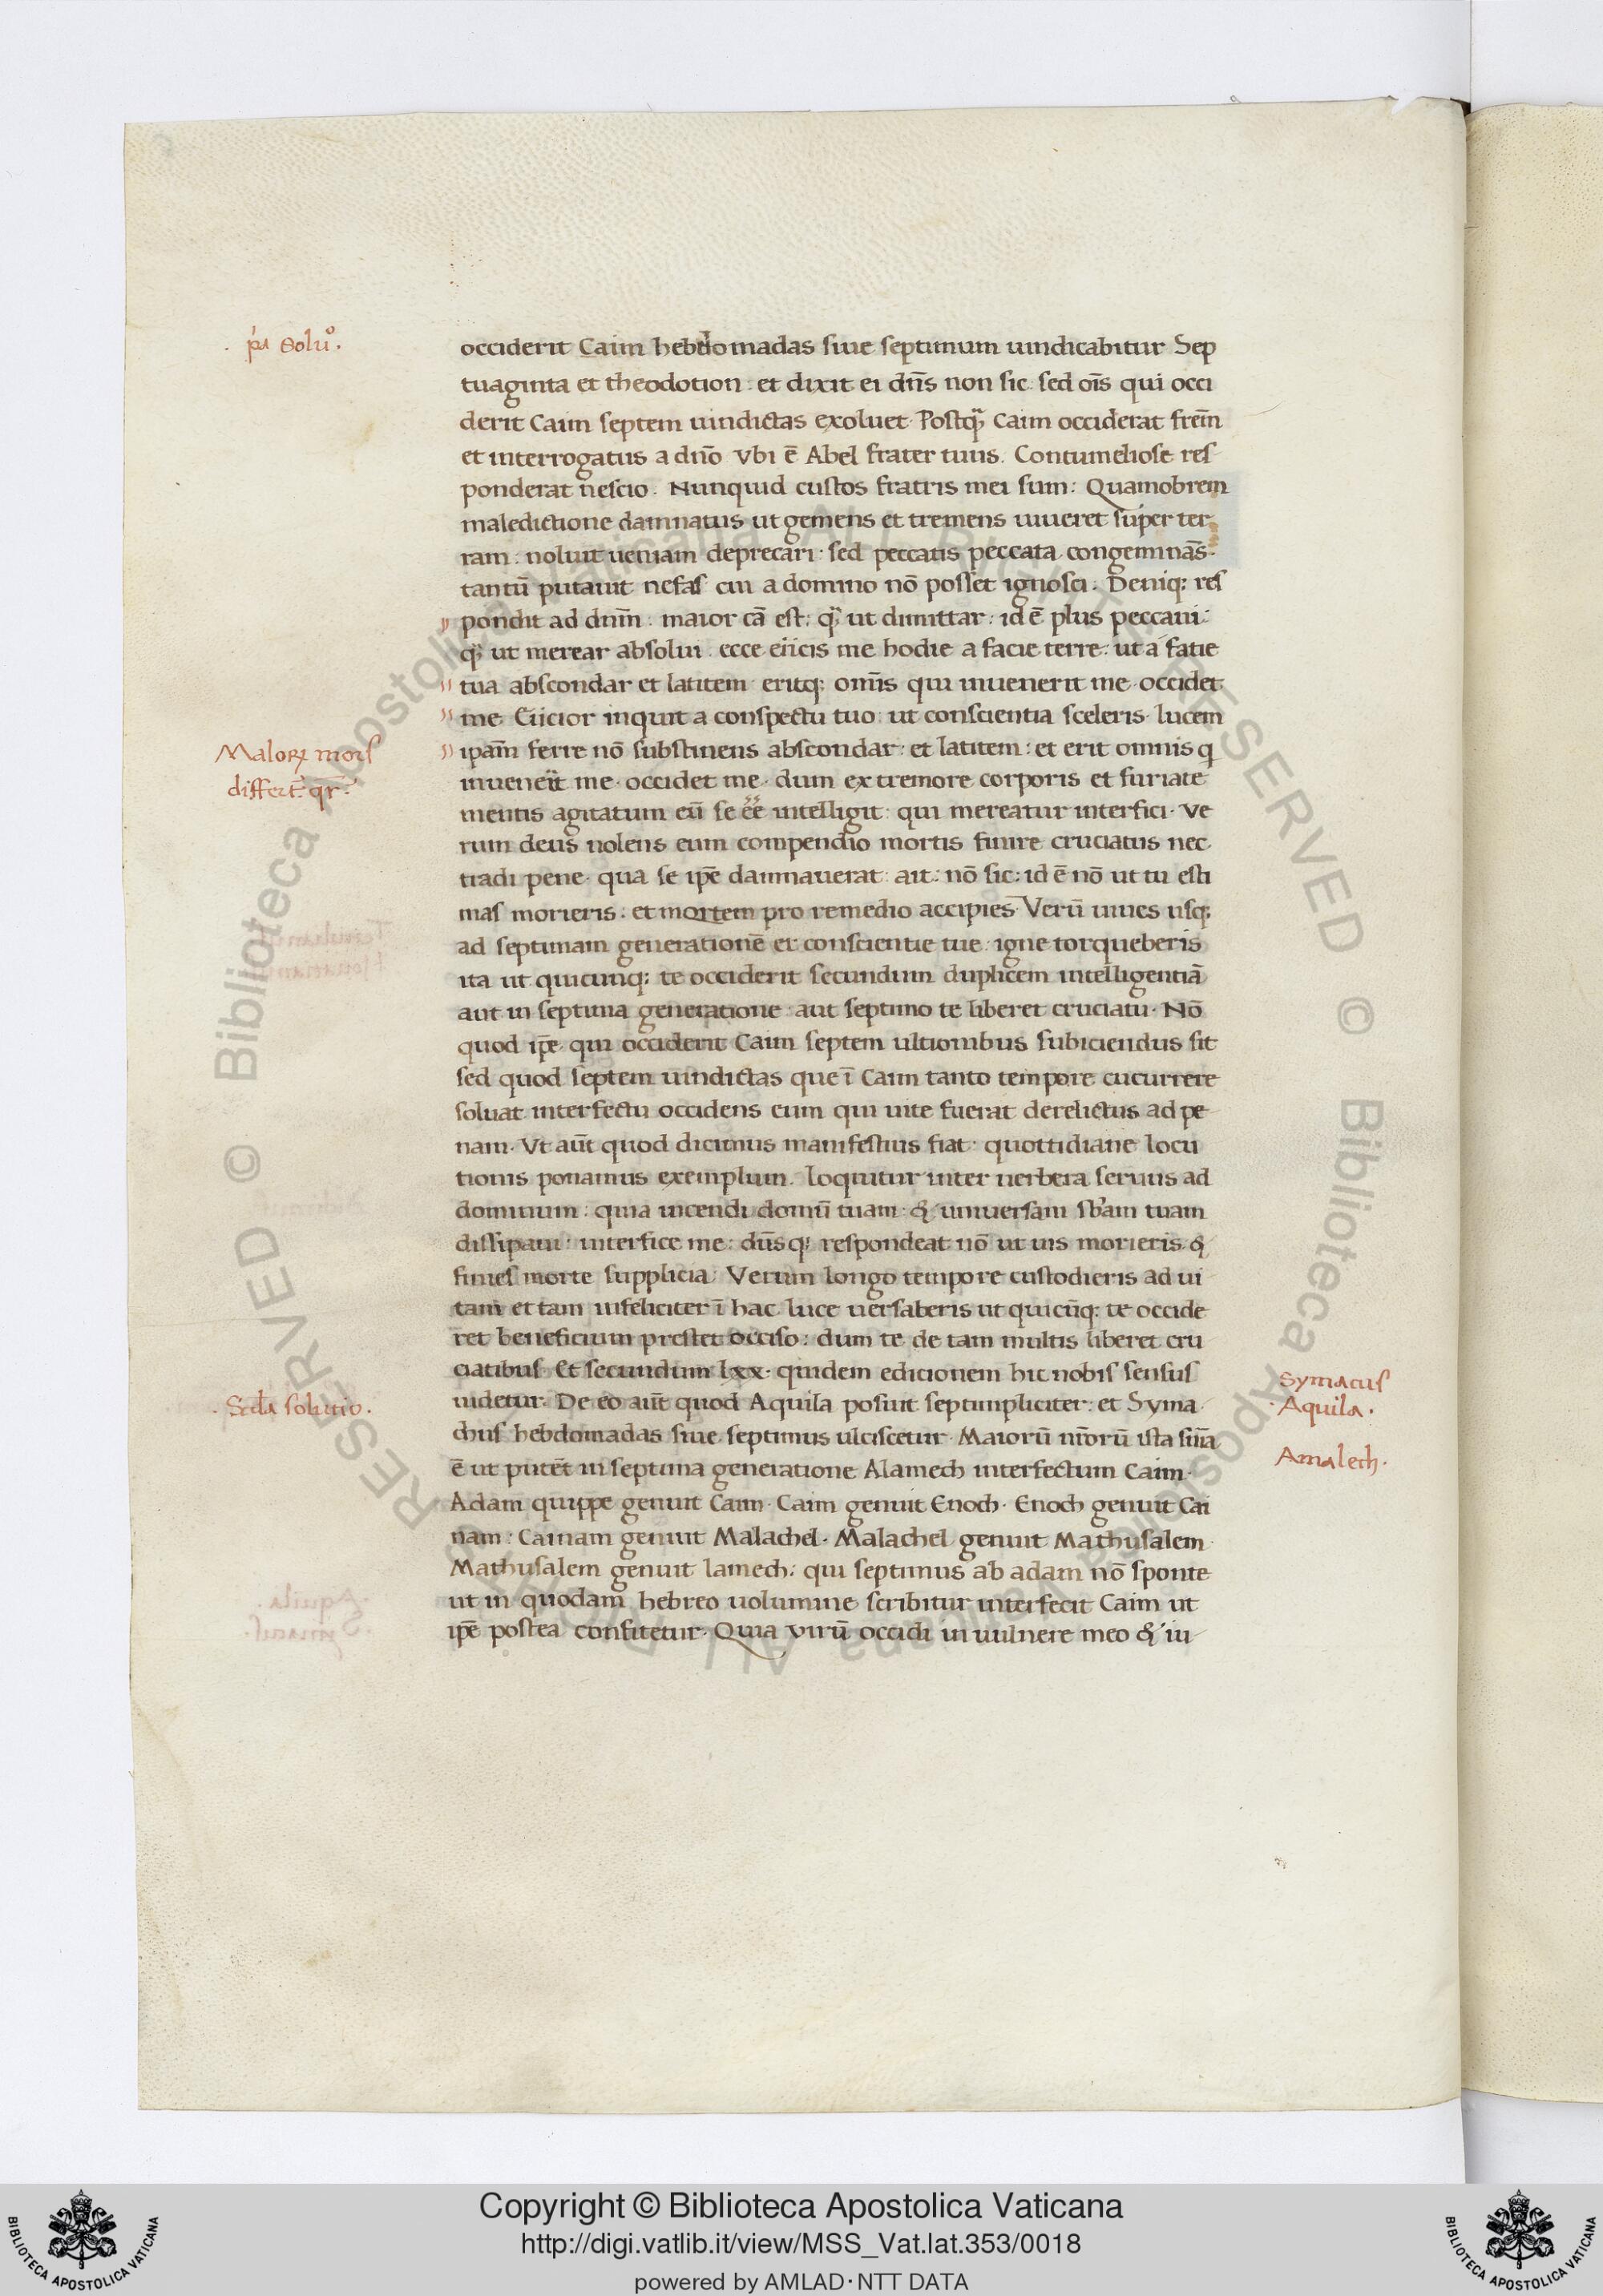 pª Solu°.
occiderit Caim hebdomadas siue septimum uindicabitur Sep
tuaginta et theodotion. et dixit ei dn̄s non sic. sed oīs qui occi
derit Caim septem uindictas exoluet. Postq̄ Caim occiderat frēm
et interrogatus a dn̄o vbi ē Abel frater tuus. Contumeliose res
ponderat nescio. Nunquid custos fratris mei sum: Quamobrem
maledictione damnatus ut gemens et tremens uiueret super ter
ram: noluit ueniam deprecari: sed peccatis peccata congeminās.
tantū putauit nefas cui a domino nō posset ignosci. Deniq; res
pondit ad dn̄m: maior cā est: q̄ ut dimittar: id ē plus peccaui:
q̄ ut merear absolui. ecce eiicis me hodie a facie terre: ut a fatie
tua abscondar et latitem eritq; omīs qui inuenerit me occidet
me. Eiicior inquit a conspectu tuo: ut conscientia sceleris lucem
ipam̄ ferre nō substinens abscondar: et latitem: et erit omnis q
Malorꝝ mors
differt. qr̄.
inuenerit me. occidet me. dum ex tremore corporis et furiate
mentis agitatum eū se ēē intelligit: qui mereatur interfici. Ve
rum deus nolens eum compendio mortis finire cruciatus nec
tradi pene. qua se ip̄e damnauerat: ait: nō sic: id ē nō ut tu esti
mas morieris: et mortem pro remedio accipies. Verū uiues usq;
ad septimam generationē et conscientie tue: igne torqueberis
ita ut quicunq; te occiderit secundum duplicem intelligentiā
aut in septima generatione: aut septimo te liberet cruciatu. Nō
quod ip̄e. qui occiderit Caim septem ultionibus subiciendus sit
sed quod septem uindictas que ī Caim tanto tempore cucurrere
soluat interfectu occidens eum qui uite fuerat derelictus ad pe
nam. Vt aūt quod dicimus manifestius fiat: quottidiane locu
tionis ponamus exemplum. loquitur inter uerbera seruus ad
dominum: quia incendi domū tuam: & uniuersam sb'am tuam
dissipaui: interfice me: dūsq; respondeat nō ut uis morieris. &
finies morte supplicia: Verum longo tempore custodieris ad ui
tam et tam infeliciter ī hac luce uersaberis ut quicūq; te occide
ret beneficium prestet occiso: dum te de tam multis liberet cru
ciatibus. Et secundum lxx. quidem edicionem hic nobis sensus
Symacus
Scda solutio.
uidetur. De eo aūt quod Aquila posuit septimpliciter: et Syma
Aquila.
chus hebdomadas siue septimus ulciscetur. Maiorū nr̄orū ista snīa
Amalech.
ē ut putēt in septima generatione Alamech interfectum Caim.
Adam quippe genuit Caim. Caim genuit Enoch. Enoch genuit Cai
nam: Cainam genuit Malachel. Malachel genuit Mathusalem
Mathusalem genuit lamech: qui septimus ab adam nō sponte
ut in quodam hebreo uolumine scribitur interfecit Caim ut
ip̄e postea confitetur. Quia virū occidi in uulnere meo & iu
© Biblioteca Apostolica Vaticana ALL RIGHTS RESERVED © Biblioteca Apostolica Vaticana ALL RIGHTS RESERVED
Copyright © Biblioteca Apostolica Vaticana
http://digi.vatlib.it/view/MSS_Vat.lat.353/0018
powered by AMLAD·NTT DATA
BIBLIOTECA APOSTOLICA VATICANA
BIBLIOTECA APOSTOLICA VATICANA